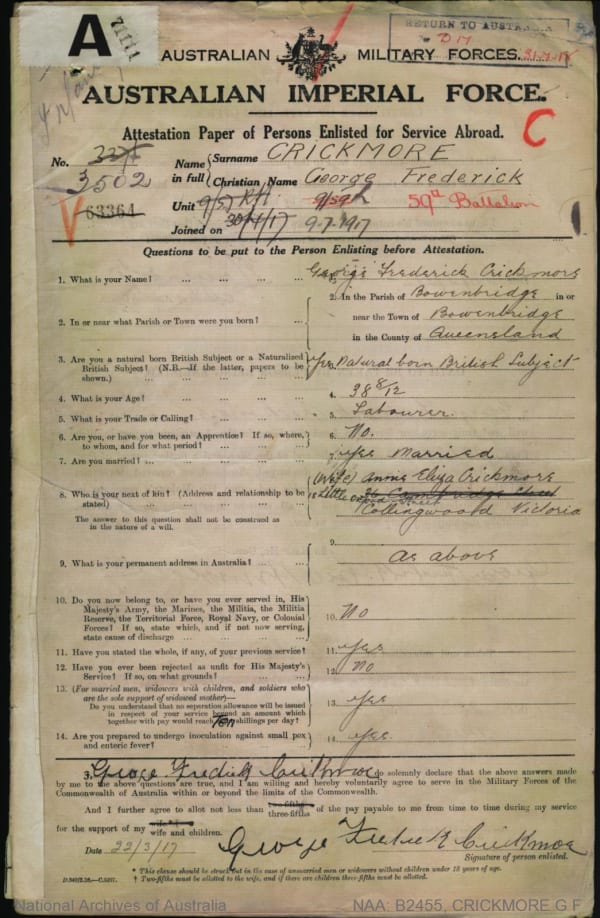 A
71111
RETURN TO AUSTRALIA
D 17
AUSTRALIAN MILITARY FORCES.
AUSTRALIAN IMPERIAL FORCE.
Attestation Paper of Persons Enlisted for Service Abroad.
C
No.
3502
63364
Name in full
Surname CRICKMORE
Christian Name George Frederick
Unit 9/59
59th Battalion
Joined on 30/1/17 9-7-1917
Questions to be put to the Person Enlisting before Attestation.
1. What is your Name? ... ... ... George Frederick Crickmore
2. In or near what Parish or Town were you born? ... 2. In the Parish of Bowenbridge in or
near the Town of Bowenbridge
in the County of Queensland
3. Are you a natural born British Subject or a Naturalized
British Subject? (N.B.—If the latter, papers to be
shown.) ... ... ... Yes Natural born British Subject
4. What is your Age? ... ... ... 4. 38 8/12
5. What is your Trade or Calling? ... ... 5. Labourer.
6. Are you, or have you been, an Apprentice? If so, where,
to whom, and for what period? ... ... 6. No.
7. Are you married? ... ... ... 7. Yes Married
8. Who is your next of kin? (Address and relationship to be
stated) ... ... ... (Wife) Annie Eliza Crickmore
8. Little
Collingwood Victoria
The answer to this question shall not be construed as
in the nature of a will.
9. What is your permanent address in Australia? ... 9. As above
10. Do you now belong to, or have you ever served in, His
Majesty's Army, the Marines, the Militia, the Militia
Reserve, the Territorial Force, Royal Navy, or Colonial
Forces? If so, state which, and if not now serving,
state cause of discharge ... ... ... 10. No
11. Have you stated the whole, if any, of your previous service? 11. Yes
12. Have you ever been rejected as unfit for His Majesty's
Service? If so, on what grounds? ... ... 12. No
13. (For married men, widowers with children, and soldiers who
are the sole support of widowed mother)—
Do you understand that no separation allowance will be issued
in respect of your service beyond an amount which
together with pay would reach Ten shillings per day? 13. Yes
14. Are you prepared to undergo inoculation against small pox
and enteric fever? ... ... ... 14. Yes.
George Fredick Crickmore do solemnly declare that the above answers made
by me to the above questions are true, and I am willing and hereby voluntarily agree to serve in the Military Forces of the
Commonwealth of Australia within or beyond the limits of the Commonwealth.
And I further agree to allot not less than two-fifths three-fifths of the pay payable to me from time to time during my service
for the support of my wife wife and children.
Date 22/3/17 George Fredrick Crickmore
Signature of person enlisted.
* This clause should be struck out in the case of unmarried men or widowers without children under 18 years of age.
† Two-fifths must be allotted to the wife, and if there are children three-fifths must be allotted.
National Archives of Australia
NAA: B2455, CRICKMORE G F